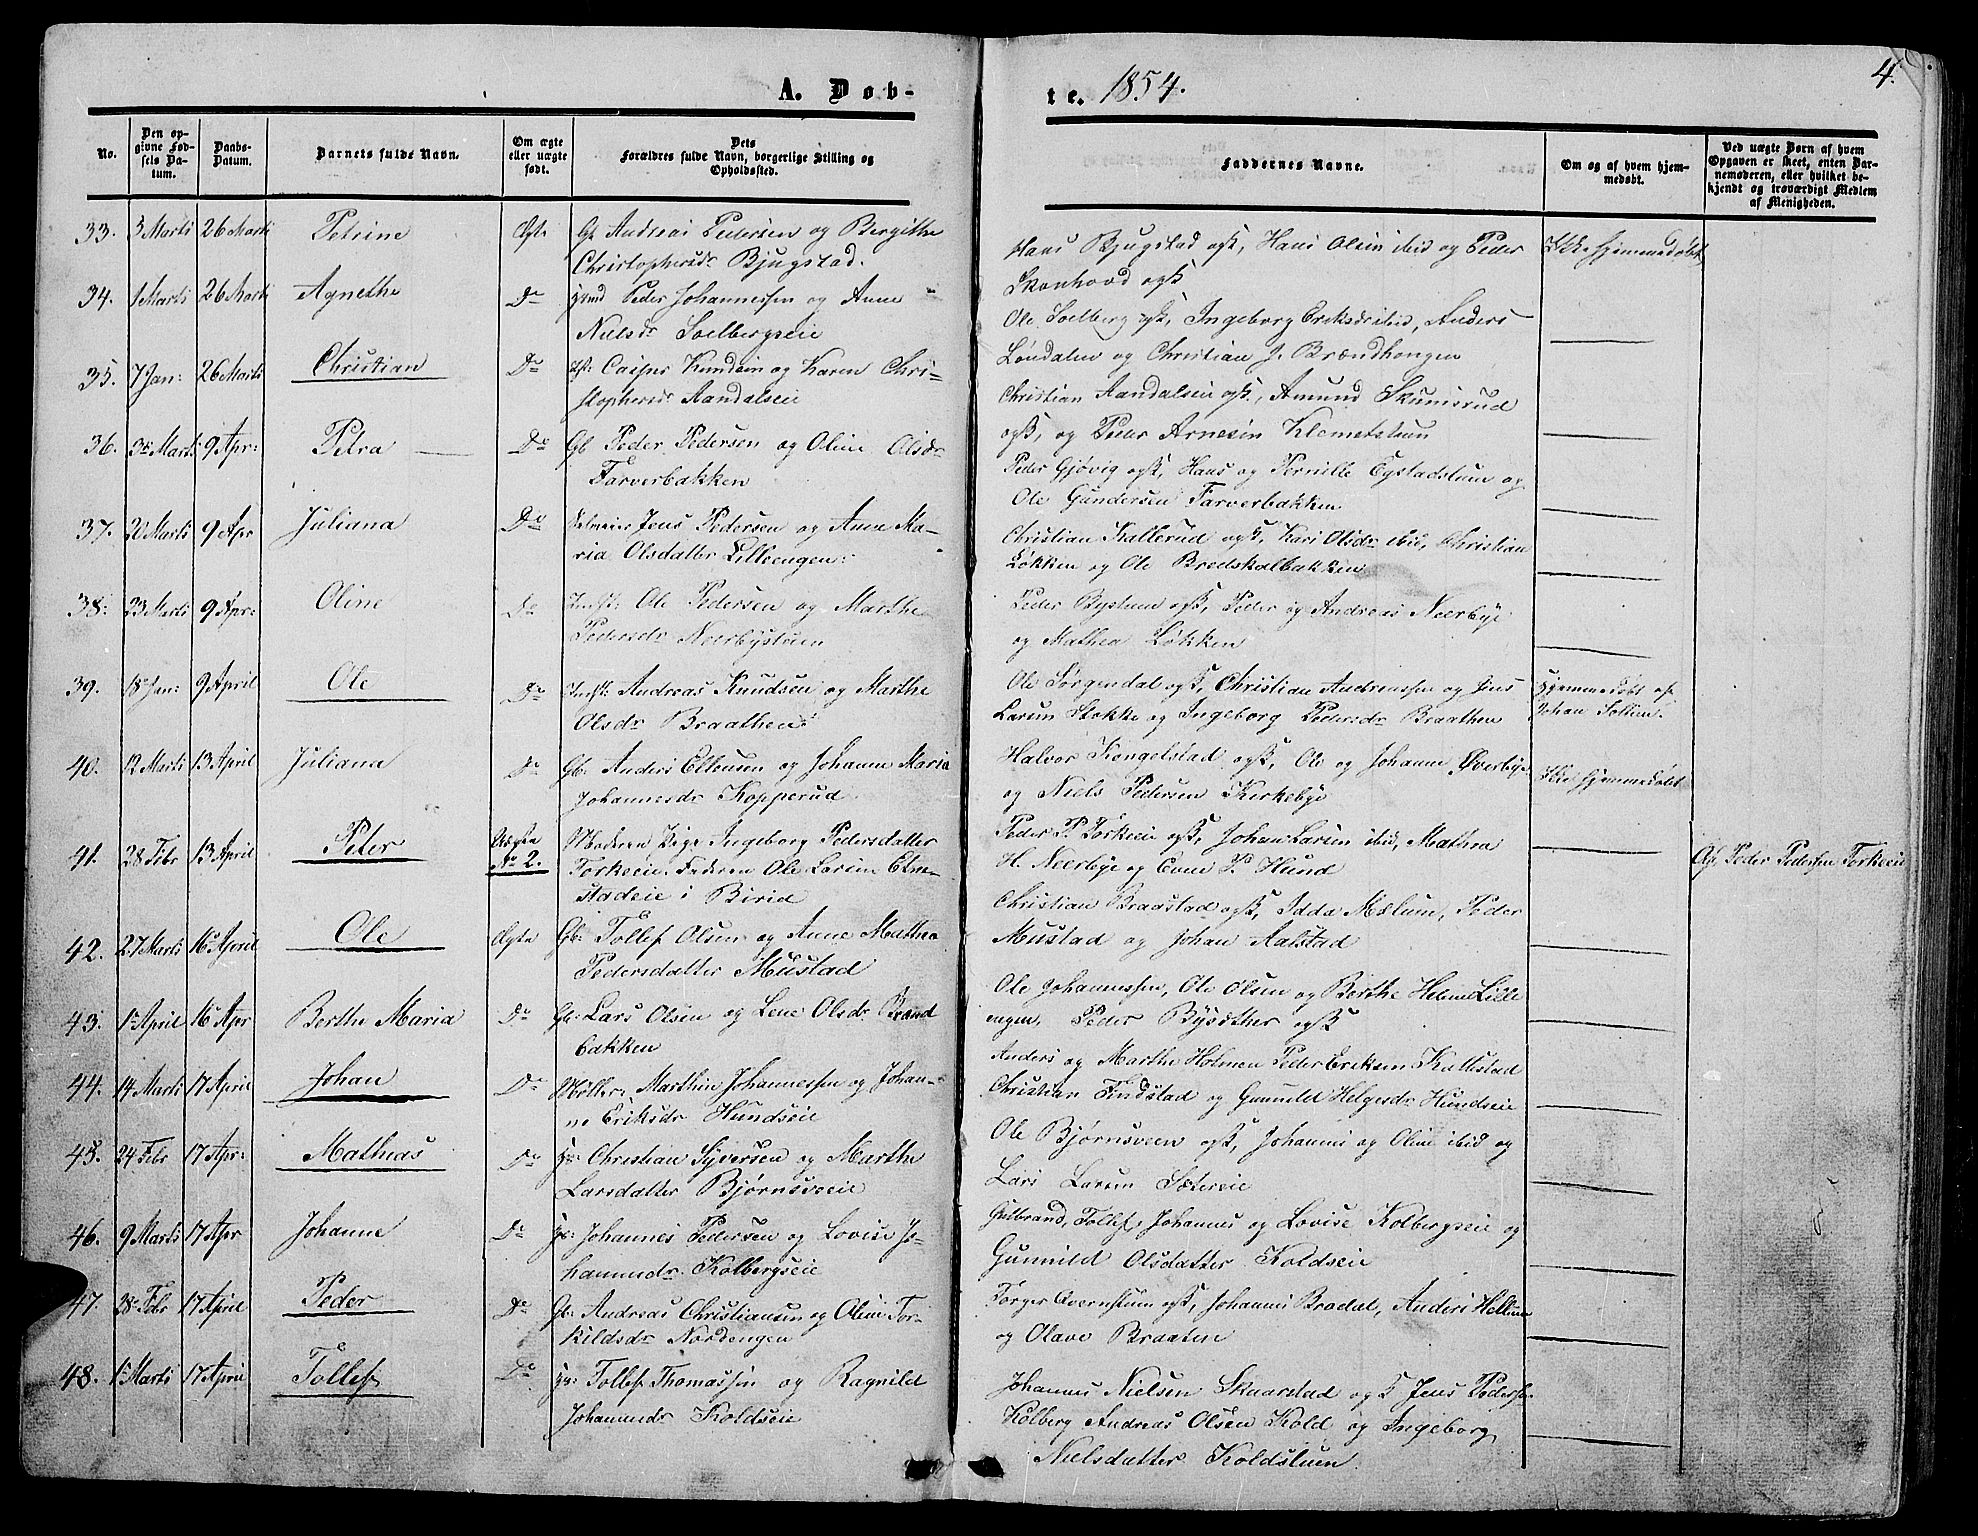 A. Døb-
te. 1854.
4.
No.
Den op-
givne Fød-
sels Da-
tum.
Daabs-
Datum.
Barnets fulde Navn.
Om ægte
eller uægte
født.
Dets
Forældres fulde Navn, borgerlige Stilling og
Opholdssted.
Faddernes Navne.
Om og af hvem hjem-
medøbt.
Ved uægte Børn af hvem
Opgaven er skeet, enten Bar-
nemoderen, eller hvilket be-
kjendt og troværdigt Medlem
af Menigheden.
33. 3 Marts 26 Marts Petrine Ægte Gb Andreas Pedersen og Bergithe
Christophersdr Bjugstad.
Hans Bjugstad ogsk, Hans Olsen ibid og Peder
Skonhovd ogsk
Ikke hjemmedøbt
34. 1 Marts 26 Marts Agnethe Do Hmd Peder Johannessen og Anne
Nielsdr Solbergseie
Ole Solberg ogsk, Ingeborg Eriksdr ibid, Anders
Løndalen og Christian J. Brændhongen
35. 7 Jan: 26 Marts Christian Do Casper Knudsen og Karen Chri-
stophersdr Aandalseie
Christian Aandalseie ogsk, Amund Skumsrud
ogsk, og Peder Arnesen Klemetstuen
36. 3 Marts 9 Apr: Petra Do Gb Peder Pedersen og Oline Olsdr
Farverbakken
Peder Gjøvig ogsk, Hans og Pernille Eystadstuen og
Ole Gundersen Farverbakken
37. 20 Marts 9 Apr Juliana Do Jens Pedersen og Anne Ma-
ria Olsdatter Lilleengen:
Christian Kallerud ogsk, Kari Olsdr ibid, Christian
Løkken og Ole Bredskalbakken
38: 23 Marts 9 Apr: Oline Do Indst: Ole Pedersen og Marthe
Pedersdr Neerbystuen
Peder Bystuen ogsk, Peder og Andreas Neerbye
og Mathea Løkken
39. 18 Jan: 9 April Ole Do Indst: Andreas Knudsen og Marthe
Olsdr Braathen:
Ole Sørgendal ogsk, Christian Andreassen og Jens
Larsen Stokke og Ingeborg Pedersdr Braathen
Hjemmedøbt af
Johan Sollien.
40. 12 Marts 13 April Juliana Do Gb. Anders Ellensen og Johanne Maria
Johannesdr Kopperud.
Halvor Kongelstad ogsk, Ole og Johanne Øverbye
og Niels Pedersen Kirkebye
Ikke hjemmedøbt
41. 28 Febr 13 April Peter Uægte
No 2. Moderen Pige Ingeborg Pedersdatter
Torkeeie. Faderen Ole Larsen Elm-
stadeie i Birid
Peder P. Torkeeie ogsk, Johan Larsen ibid, Mathea
H. Neerbye og Evne P. Hund
Af Peder Pedersen Torkeeie
42. 27 Marts 16 April Ole Ægte Gb: Tollef Olsen og Anne Mathea
Pedersdatter Mustad
Christian Braastad ogsk, Idda Mælum, Peder
Mustad og Johan Aalstad
43. 1 April 16 Apr Berthe Maria Do Gb: Lars Olsen og Lene Olsdr Brænd
bakken
Ole Johannessen, Ole Olsen og Berthe Helene Lille
engen, Peder Bysæther ogsk
44. 14 Marts 17 April Johan Do Møller: Marthin Johannessen og Johan-
ne Eriksdr Hundseie
Anders og Marthe Holmen Peder Eriksen Kallestad
Christian Findstad og Gunnild Helgesdr Hundseie
45. 24 Febr 17 Apr: Mathias Do Christian Syversen og Marthe
Larsdatter Bjørnsveeie
Ole Bjørnsveen ogsk, Johannes og Oline ibid og
Lars Larsen Sætereie
46. 9 Marts 17 Apr Johanne Do Johannes Pedersen og Lovise Jo-
hannesdr. Kolbergseie
Gulbrand, Tollef, Johannes og Lovise Kolbergseie og
Gunnild Olsdatter Koldseie
47. 28 Febr 17 April Peder Do Gb. Andreas Christiansen og Oline Tor-
kildsdr Nordengen
Torger Qvernstuen ogsk, Johannes Bradal, Anders Hellum
og Olave Braaten
48. 1 Marts 17 April Tollef Do Tollef Thomassen og Ragnild
Johannesdr Koldseie
Johannes Nielsen Skaarstad ogsk Jens Pederse
Kolberg Andreas Olsen Kold og Ingeborg
Nielsdatter Koldstuen